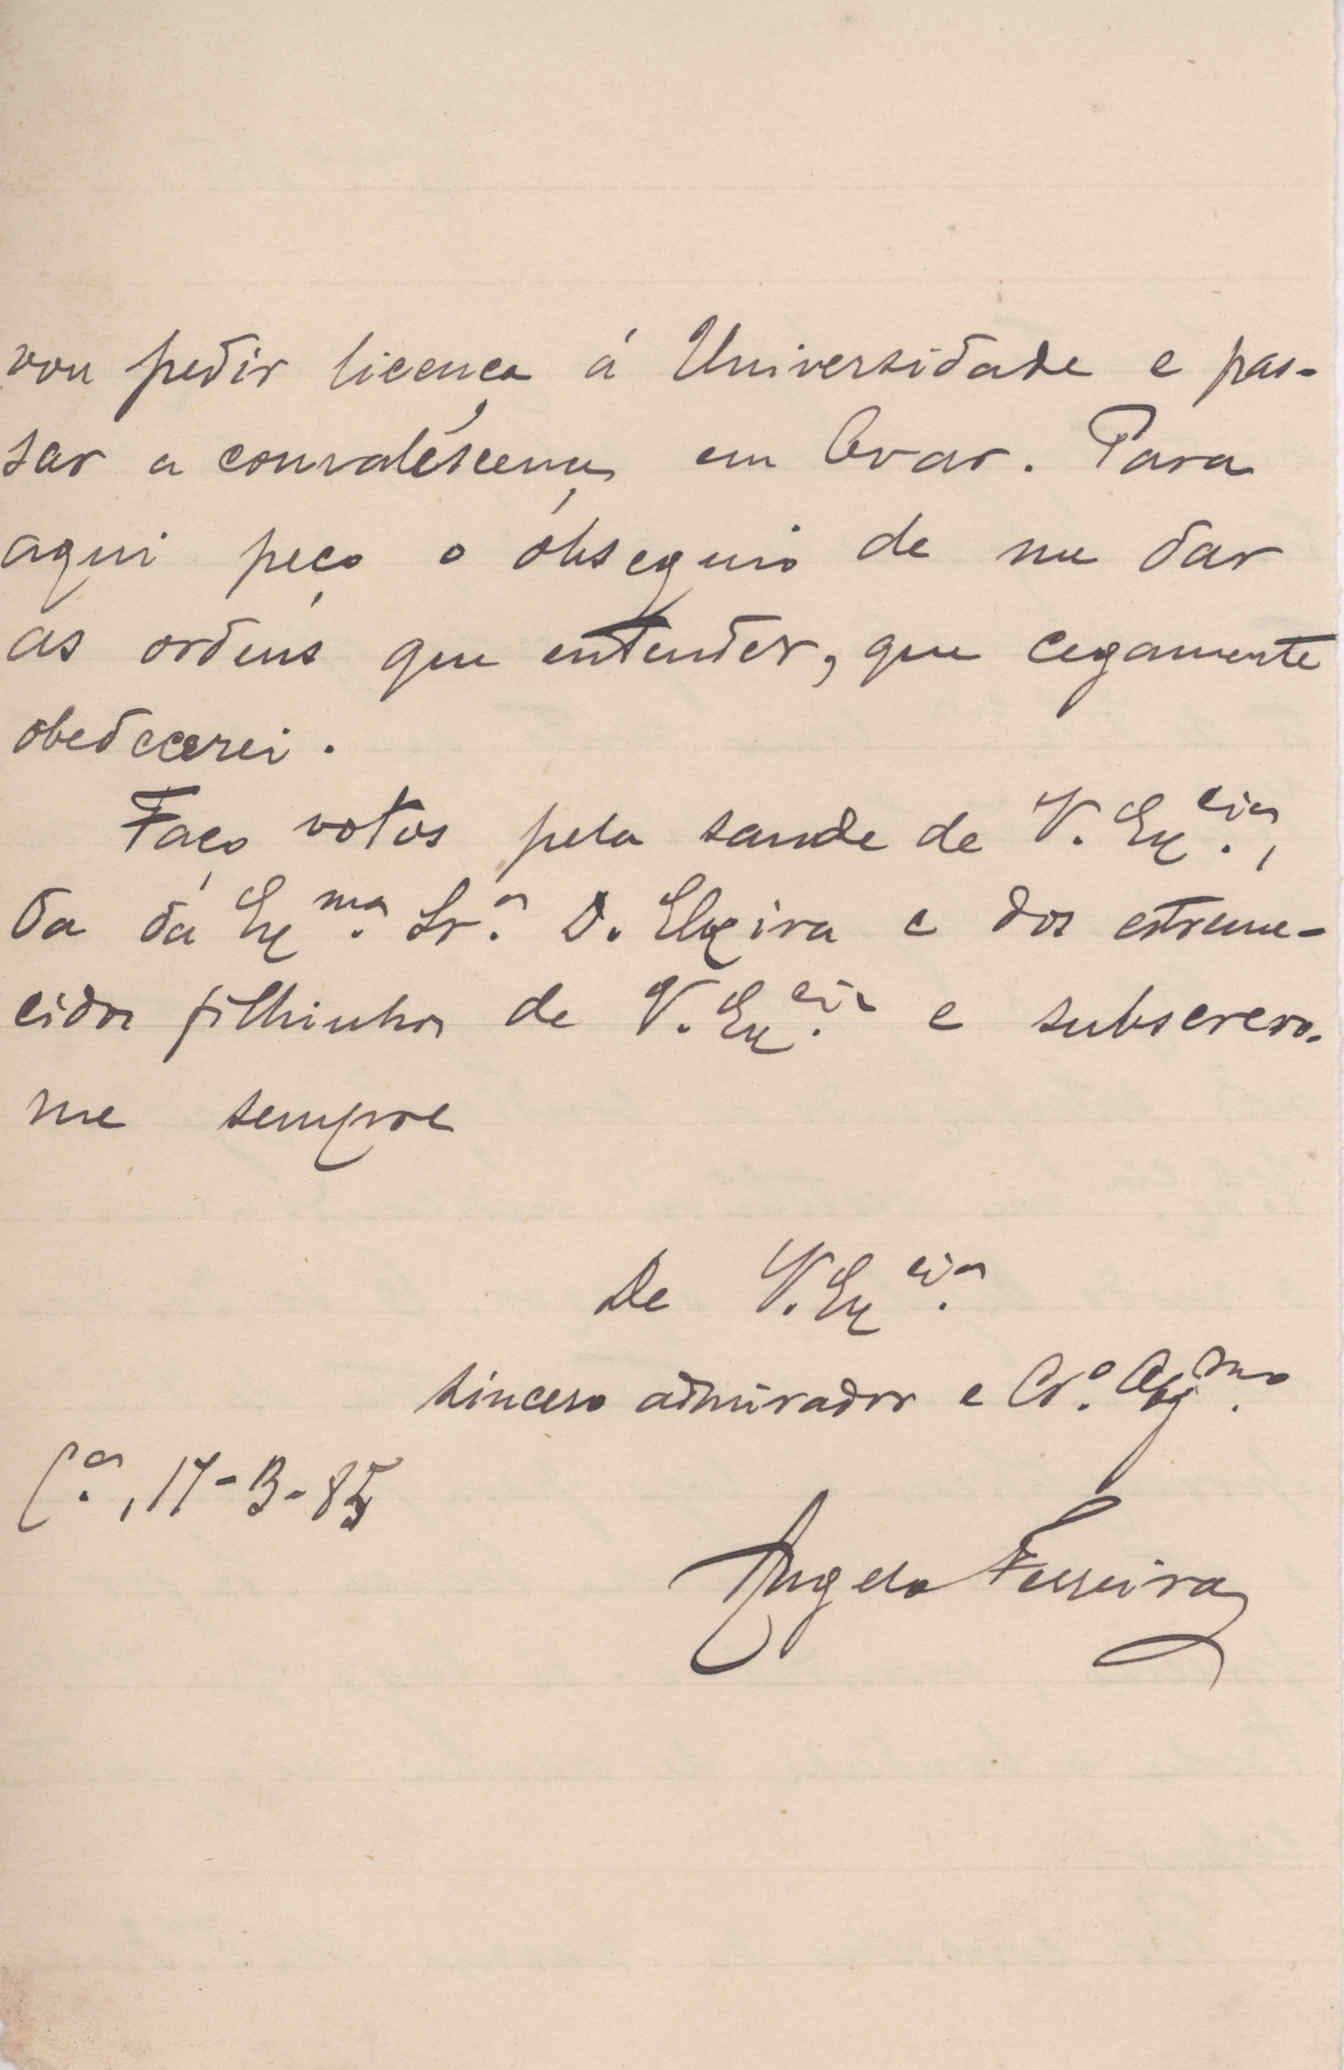 vou pedir licença á Universidade e pas-
sar a convalescença em Ovar. Para
aqui peço o obsequio de me dar
as ordens que entender, que cegamente
obedecerei.
Faço votos pela saude de V. Ex.cia,
da da Ex.ma Sr.a D. Elzira e dos estreme-
cidos filhinhos de V. Ex.cia e subscrevo-
me sempre
De V. Ex.cia
sincero admirador e Cr.o
C.a, 17-3-85
Angelo Ferreira